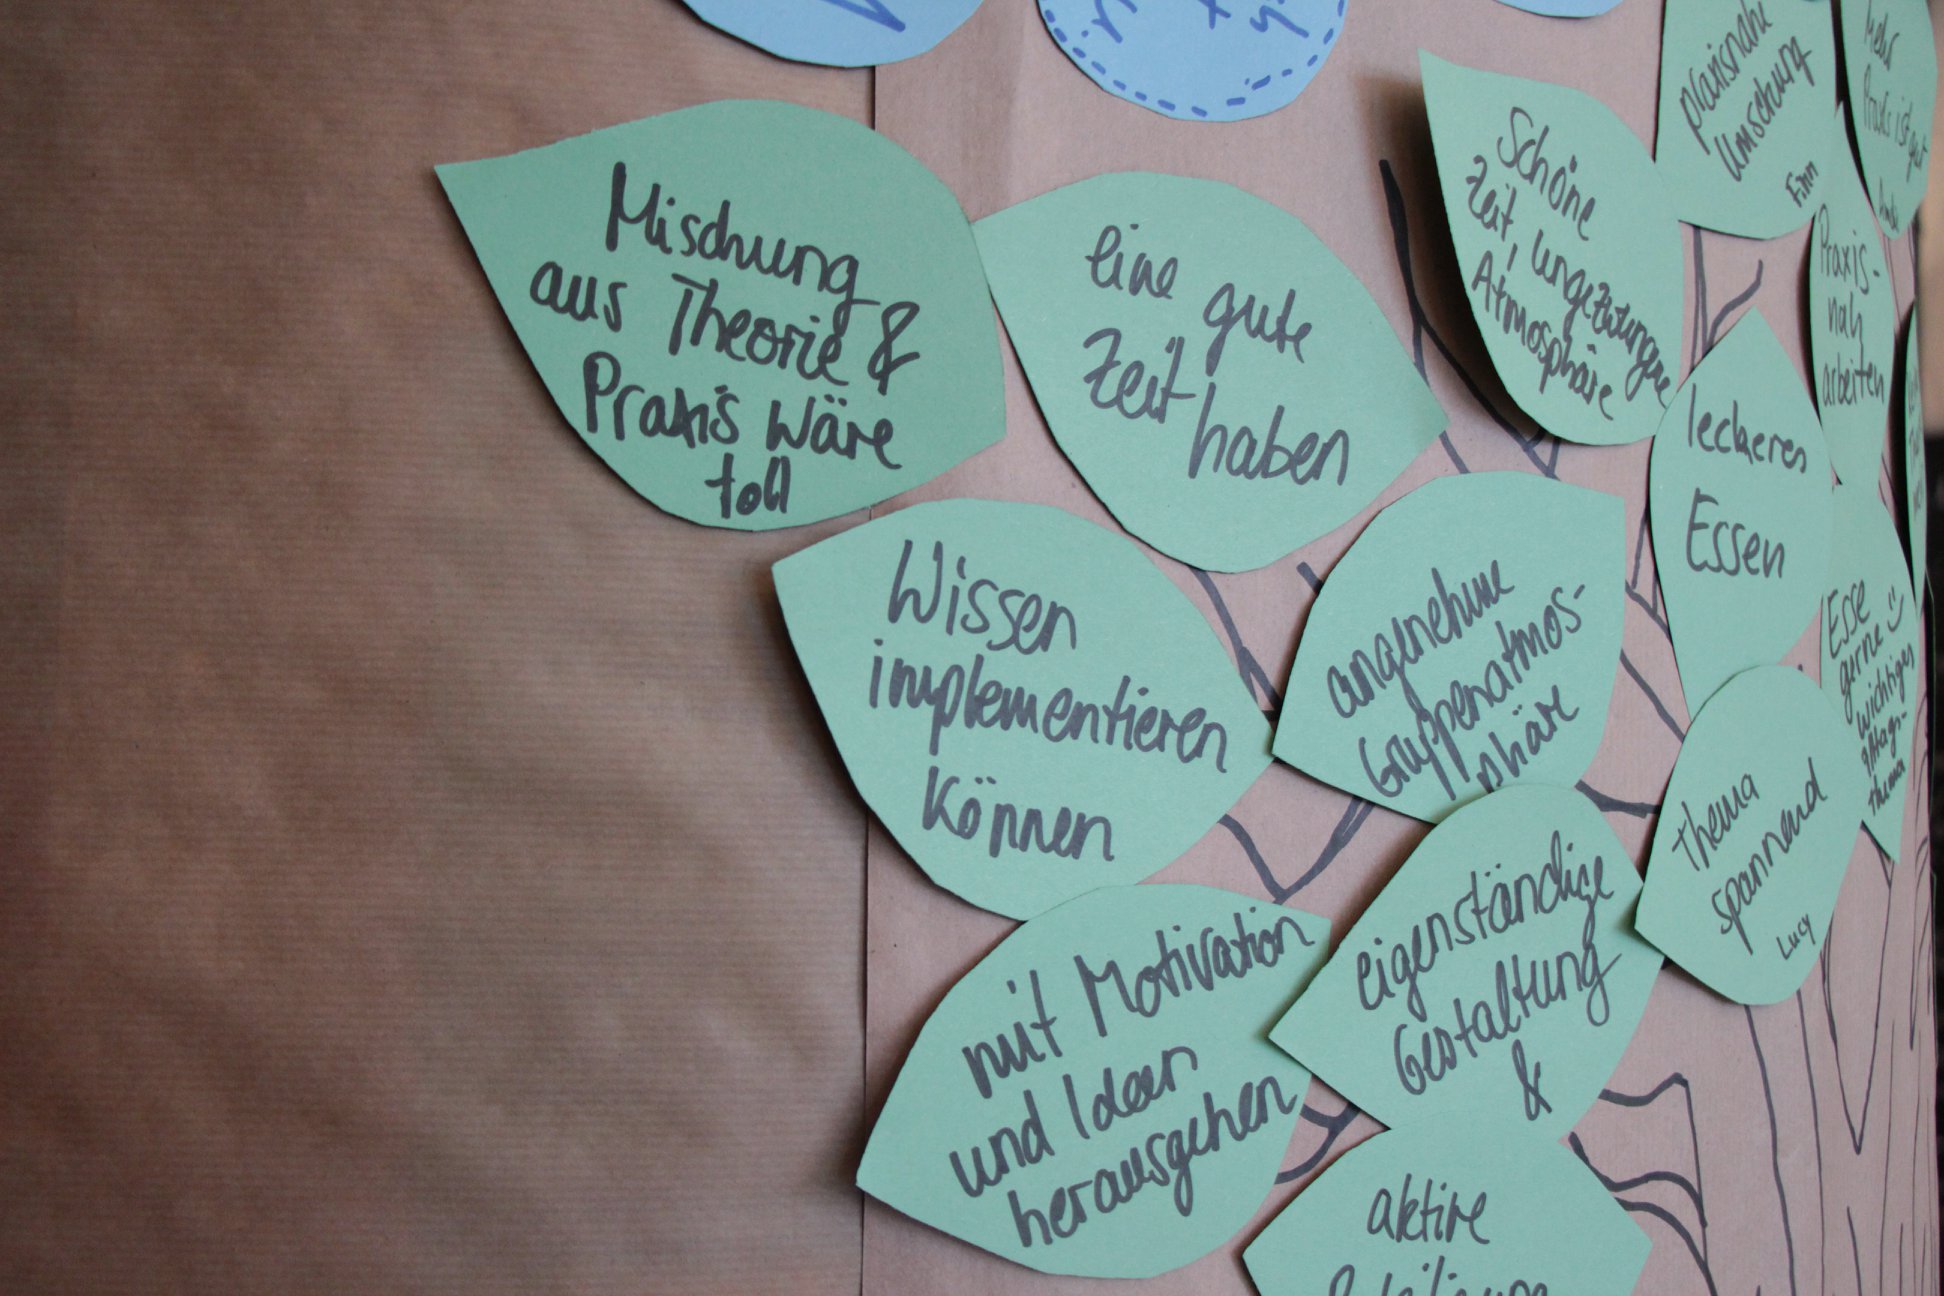 Mischung
aus Theorie &
Praxis wäre
toll
eine gute
Zeit
haben
Schöne
Zeit, ungezwungene
Atmosphäre
praxisnahe
Umschung
Finn
Mehr
Praxis ist
gut
Praxis-
nah
arbeiten
leckeres
Essen
Wissen
implementieren
können
angenehme
Gruppenatmos-
phäre
Esse
gerne
wichtiges
Alltags-
thema
Thema
spannend
Lucy
mit Motivation
und Ideen
herausgehen
eigenständige
Gestaltung
&
aktive